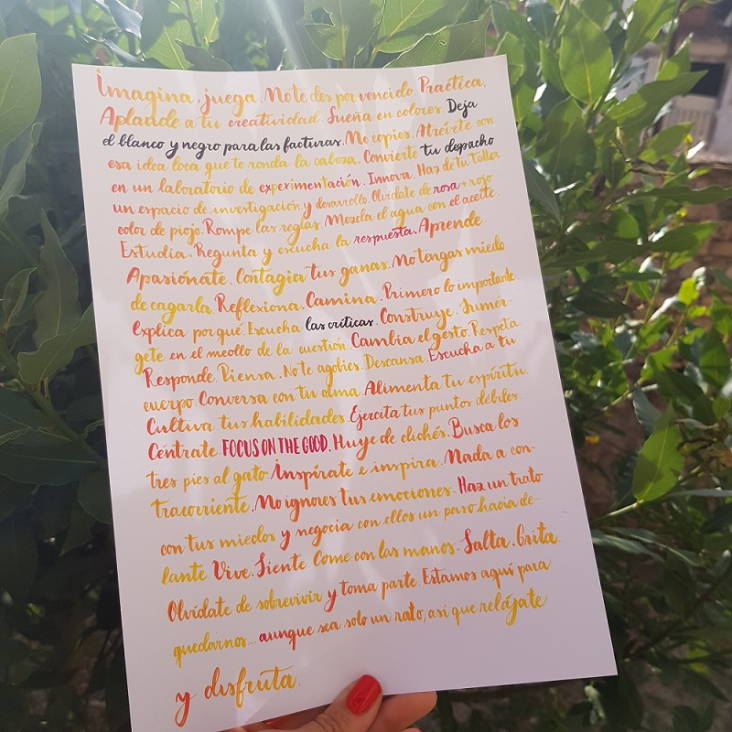 Imagina, juega. No te des por vencido. Practica,
Aplaude a tu creatividad. Sueña en colores. Deja
el blanco y negro para las facturas. No copies. Atrévete con
esa idea loca que te ronda la cabeza. Convierte tu despacho
en un laboratorio de experimentación. Innova. Haz de tu taller
un espacio de investigación y desarrollo. Olvídate de rosa o rojo
color de piojo. Rompe las reglas. Mezcla el agua con el aceite.
Estudia. Pregunta y escucha la respuesta. Aprende.
Apasiónate. Contagia tus ganas. No tengas miedo
de cagarla. Reflexiona. Camina. Primero lo importante.
Explica por qué. Escucha las críticas. Construye. Sumér-
gete en el meollo de la cuestión. Cambia el gesto. Respeta.
Responde. Piensa. No te agobies. Descansa. Escucha a tu
cuerpo. Conversa con tu alma. Alimenta tu espíritu.
Cultiva tus habilidades. Ejercita tus puntos débiles.
Céntrate. FOCUS ON THE GOOD. Huye de clichés. Busca los
tres pies al gato. Inspírate e inspira. Nada a con-
tracorriente. No ignores tus emociones. Haz un trato
con tus miedos y negocia con ellos un paso hacia de-
lante. Vive. Siente. Come con las manos. Salta. Grita.
Olvídate de sobrevivir y toma parte. Estamos aquí para
quedarnos... aunque sea solo un rato, así que relájate
y disfruta.